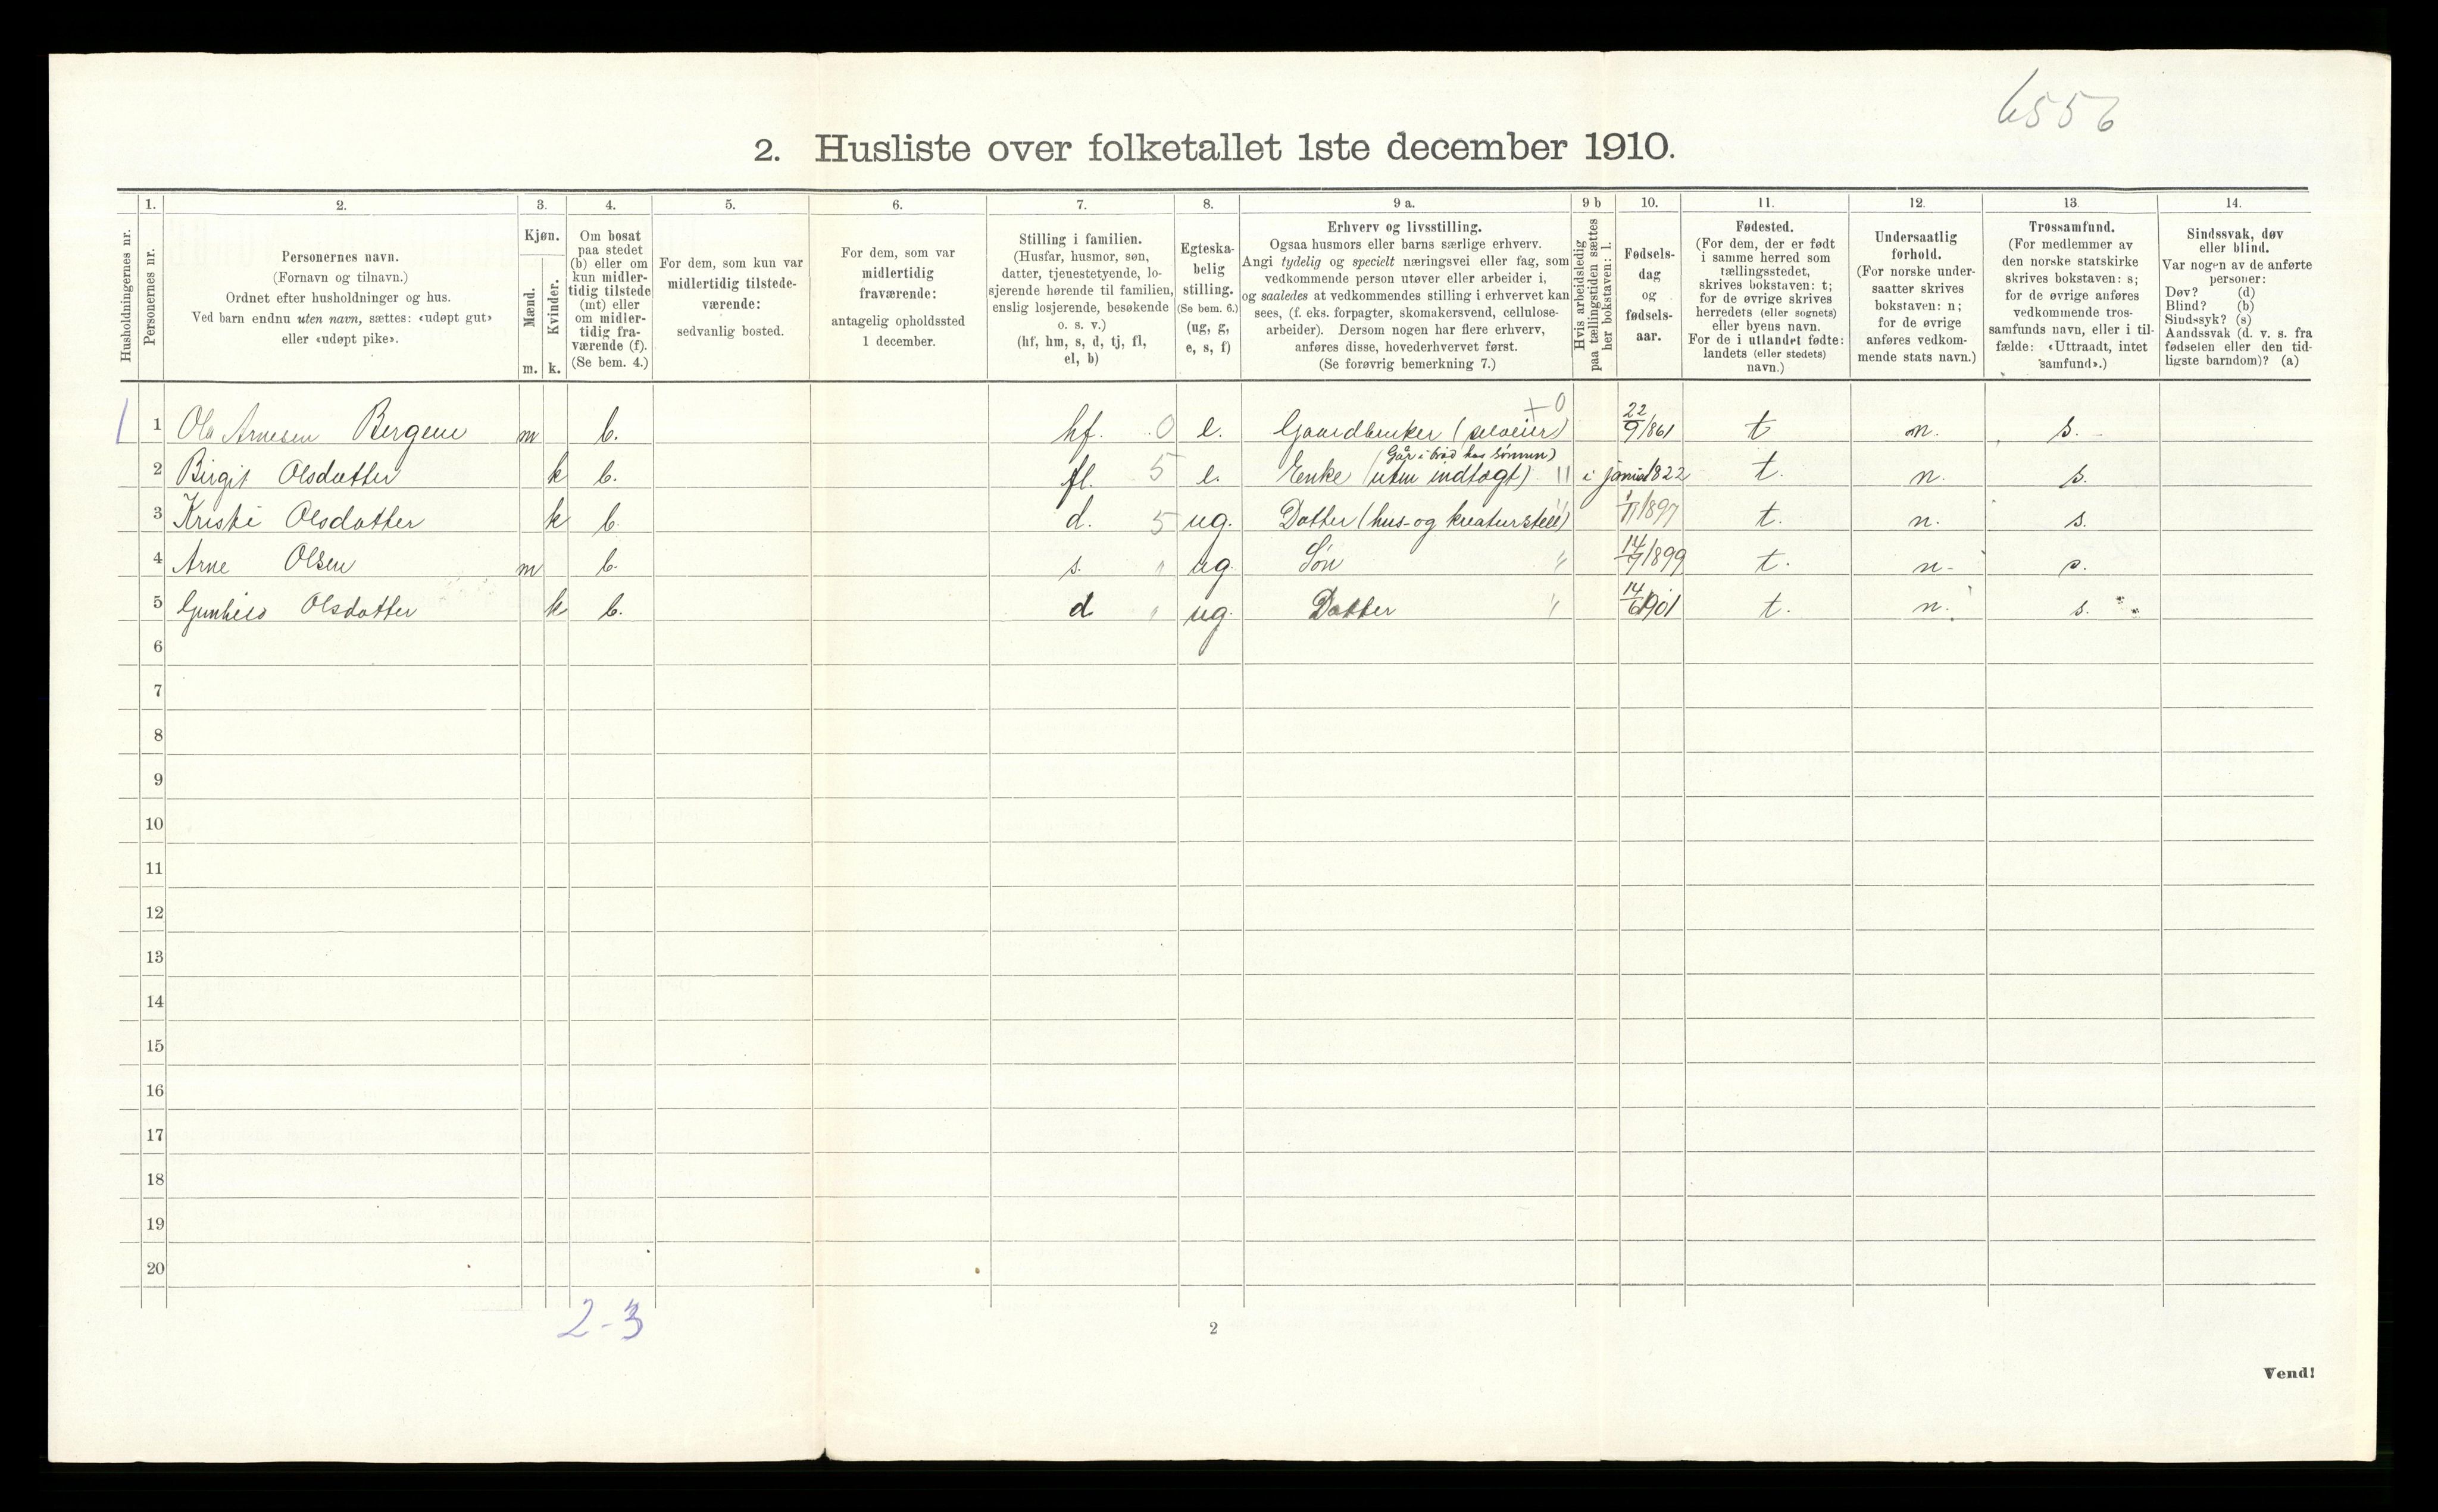 6556
2. Husliste over folketallet 1ste december 1910.
Husholdningernes nr.
1.
Personernes nr.
2.
Personernes navn.
(Fornavn og tilnavn.)
Ordnet efter husholdninger og hus.
Ved barn endnu uten navn, sættes: «udøpt gut»
eller «udøpt pike».
3.
Kjøn.
Mænd.
Kvinder.
m. k.
4.
Om bosat
paa stedet
(b) eller om
kun midler-
tidig tilstede
(mt) eller
om midler-
tidig fra-
værende (f).
(Se bem. 4.)
5.
For dem, som kun var
midlertidig tilstede-
værende:
sedvanlig bosted.
6.
For dem, som var
midlertidig
fraværende:
antagelig opholdssted
1 december.
7.
Stilling i familien.
(Husfar, husmor, søn,
datter, tjenestetyende, lo-
sjerende hørende til familien,
enslig losjerende, besøkende
o. s. v.)
(hf, hm, s, d, tj, fl,
el, b)
8.
Egteska-
belig
stilling.
(Se bem. 6.)
(ug, g,
e, s, f)
9 a.
Erhverv og livsstilling.
Ogsaa husmors eller barns særlige erhverv.
Angi tydelig og specielt næringsvei eller fag, som
vedkommende person utøver eller arbeider i,
og saaledes at vedkommendes stilling i erhvervet kan
sees, (f. eks. forpagter, skomakersvend, cellulose-
arbeider). Dersom nogen har flere erhverv,
anføres disse, hovederhvervet først.
(Se forøvrig bemerkning 7.)
9 b
Hvis arbeidsledig
paa tællingstiden sættes
her bokstaven: l.
10.
Fødsels-
dag
og
fødsels-
aar.
11.
Fødested.
(For dem, der er født
i samme herred som
tællingsstedet,
skrives bokstaven: t;
for de øvrige skrives
herredets (eller sognets)
eller byens navn.
For de i utlandet fødte:
landets (eller stedets)
navn.)
12.
Undersaatlig
forhold.
(For norske under-
saatter skrives
bokstaven: n;
for de øvrige
anføres vedkom-
mende stats navn.)
13.
Trossamfund.
(For medlemmer av
den norske statskirke
skrives bokstaven: s;
for de øvrige anføres
vedkommende tros-
samfunds navn, eller i til-
fælde: «Uttraadt, intet
samfund».)
14.
Sindssvak, døv
eller blind.
Var nogen av de anførte
personer:
Døv? (d)
Blind? (b)
Sindssyk? (s)
Aandssvak (d. v. s. fra
fødselen eller den tid-
ligste barndom)? (a)
1 1 Ola Arnesen Bergene m b. hf. 0 e. Gaardbruker (selveier) +0 22/9/861 t n. s.
2 Birgit Olsdatter k b. fl. 5 e. Enke (uten indtægt) (Går i brød hos sønnen) " i juni 1822 t. n. s.
3 Kristi Olsdatter k b. d. 5 ug. Datter (hus- og kreaturstell) " /1897 t. n. s.
4 Arne Olsen m b. s. " ug. Søn " 14/ /1899 t. n. s.
5 Gunhild Olsdatter k b. d " ug. Datter " 14/6 1901 t. n. s.
6
7
8
9
10
11
12
13
14
15
16
17
18
19
20
2-3
2
Vend!